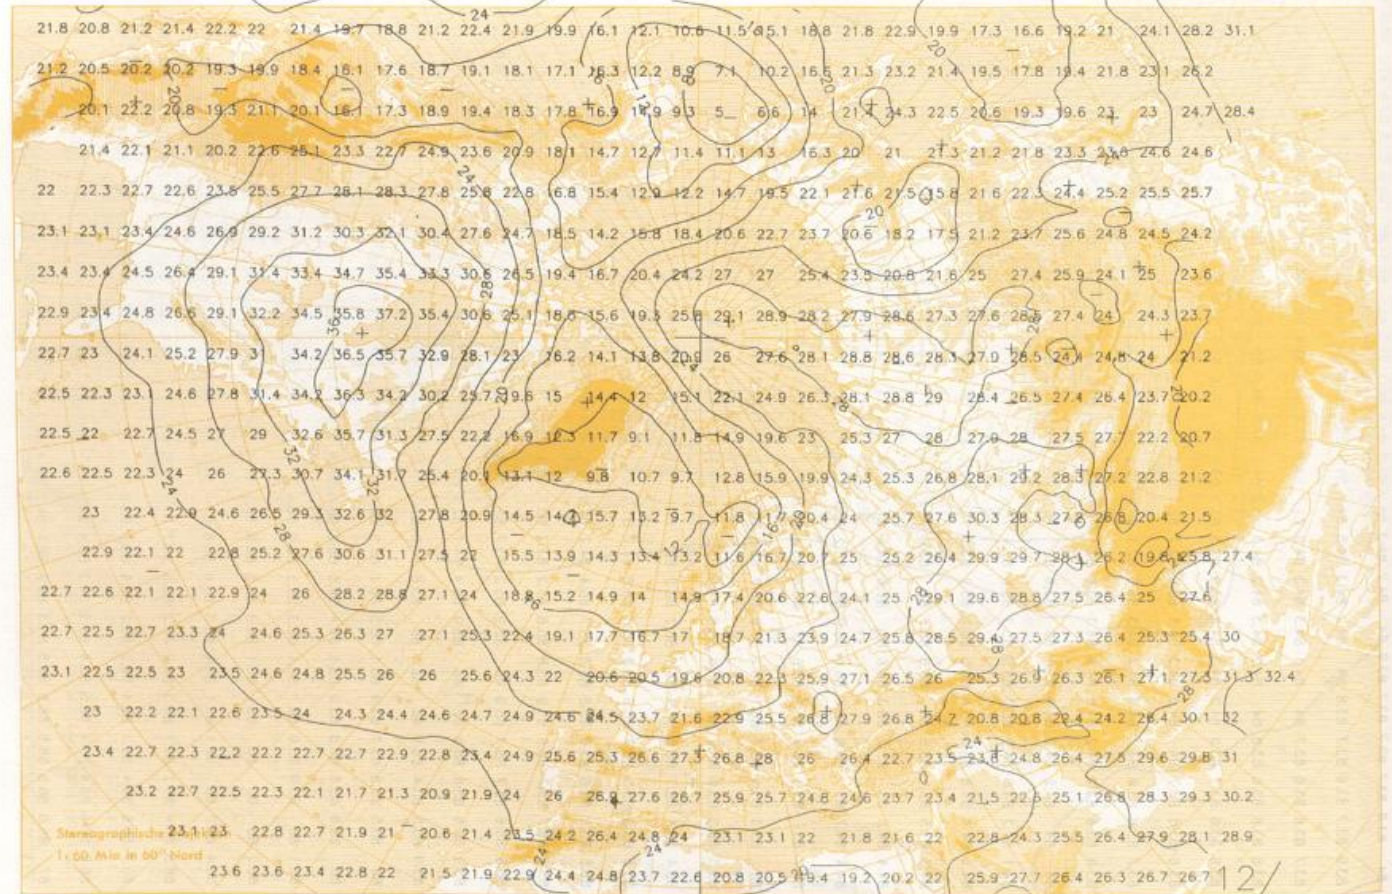 24
21.8 20.8 21.2 21.4 22.2 22 21.4 19.7 18.8 21.2 22.4 21.9 19.9 16.1 12.1 10.6 11.5 15.1 18.8 21.8 22.9 19.9 17.3 16.6 19.2 21 24.1 28.2 31.1
21.2 20.5 20.2 20.2 19.3 19.9 18.4 16.1 17.6 18.7 19.1 18.1 17.1 16.3 12.2 8.9 7.1 10.2 16.5 21.3 23.2 21.4 19.5 17.8 19.4 21.8 23.1 26.2
20.1 22.2 20.8 19.3 21.1 20.1 16.1 17.3 18.9 19.4 18.3 17.8 16.9 14.9 9.3 5 6.6 14 21.4 24.3 22.5 20.6 19.3 19.6 23 23 24.7 28.4
21.4 22.1 21.1 20.2 22.6 25.1 23.3 22.7 24.9 23.6 20.9 18.1 14.7 12.7 11.4 11.1 13 16.3 20 21 21.3 21.2 21.8 23.3 23.8 24.6 24.6
22 22.3 22.7 22.6 23.5 25.5 27.7 28.1 28.3 27.8 25.8 22.8 16.8 15.4 12.9 12.2 14.7 19.5 22.1 21.6 21.5 15.8 21.6 22.3 24.4 25.2 25.5 25.7
23.1 23.1 23.4 24.6 26.9 29.2 31.2 30.3 32.1 30.4 27.6 24.7 18.5 14.2 15.8 18.4 20.6 22.7 23.7 20.6 18.2 17.5 21.2 23.7 25.6 24.8 24.5 24.2
23.4 23.4 24.5 26.4 29.1 31.4 33.4 34.7 35.4 33.3 30.6 26.5 19.4 16.7 20.4 24.2 27 27 25.4 23.5 20.8 21.6 25 27.4 25.9 24.1 25 23.6
22.9 23.4 24.8 26.6 29.1 32.2 34.5 35.8 37.2 35.4 30.6 25.1 18.6 15.6 19.3 25.8 29.1 28.9 28.2 27.9 28.6 27.3 27.6 28.5 27.4 24 24.3 23.7
22.7 23 24.1 25.2 27.9 31 34.2 36.5 35.7 32.9 28.1 23 16.2 14.1 13.8 20.9 26 27.6 28.1 28.8 28.6 28.1 27.9 28.5 24.4 24.8 24 21.2
22.5 22.3 23.1 24.6 27.8 31.4 34.2 36.3 34.2 30.2 25.7 19.6 15 14.4 12 15.1 22.1 24.9 26.3 28.1 28.8 29 28.4 26.5 27.4 26.4 23.7 20.2
22.5 22 22.7 24.5 27 29 32.6 35.7 31.3 27.5 22.2 16.9 12.3 11.7 9.1 11.8 14.9 19.6 23 25.3 27 28 27.9 28 27.5 27.7 22.2 20.7
22.6 22.5 22.3 24 26 27.3 30.7 34.1 31.7 25.4 20.1 13.1 12 9.8 10.7 9.7 12.8 15.9 19.9 24.3 25.3 26.8 28.1 29.2 28.3 27.2 22.8 21.2
23 22.4 22.9 24.6 26.5 29.3 32.6 32 27.8 20.9 14.5 14.7 15.7 13.2 9.7 11.8 11.7 20.4 24 25.7 27.6 30.3 28.3 27.2 26.8 20.4 21.5
22.9 22.1 22 22.8 25.2 27.6 30.6 31.1 27.5 22 15.5 13.9 14.3 13.4 13.2 11.6 16.7 20.7 25 25.2 26.4 29.9 29.7 28.1 26.2 19.8 25.8 27.4
22.7 22.6 22.1 22.1 22.9 24 26 28.2 28.8 27.1 24 18.8 15.2 14.9 14 14.9 17.4 20.6 22.6 24.1 25.1 29.1 29.6 28.8 27.5 26.4 25 27.6
22.7 22.5 22.7 23.3 24 24.6 25.3 26.3 27 27.1 25.3 22.4 19.1 17.7 16.7 17 18.7 21.3 23.9 24.7 25.8 28.5 29.4 27.5 27.3 26.4 25.3 25.4 30
23.1 22.5 22.5 23 23.5 24.6 24.8 25.5 26 26 25.6 24.3 22 20.6 20.5 19.6 20.8 22.3 25.9 27.1 26.5 26 25.3 26.9 26.3 26.1 27.1 27.3 31.3 32.4
23 22.2 22.1 22.6 23.5 24 24.3 24.4 24.6 24.7 24.9 24.6 24.5 23.7 21.6 22.9 25.5 26.8 27.9 26.8 24.7 20.8 20.8 22.4 24.2 26.4 30.1 32
23.4 22.7 22.3 22.2 22.2 22.7 22.7 22.9 22.8 23.4 24.9 25.6 25.3 26.6 27.3 26.8 28 26 26.4 22.7 23.5 23.8 24.8 26.4 27.5 29.6 29.8 31
23.2 22.7 22.5 22.3 22.1 21.7 21.3 20.9 21.9 24 26 26.9 27.6 26.7 25.9 25.7 24.8 24.6 23.7 23.4 21.5 22.5 25.1 26.8 28.3 29.3 30.2
Stereographische
23.1 23 22.8 22.7 21.9 21 20.6 21.4 23.5 24.2 26.4 24.8 24 23.1 23.1 22 21.8 21.6 22 22.8 24.3 25.5 26.4 27.9 28.1 28.9
1:60 Mio in 60° Nord
23.6 23.6 23.4 22.8 22 21.5 21.9 22.9 24.4 24.8 23.7 22.6 20.8 20.5 19.4 19.2 20.2 22 25.9 27.7 26.4 26.3 26.7 26.7
12/